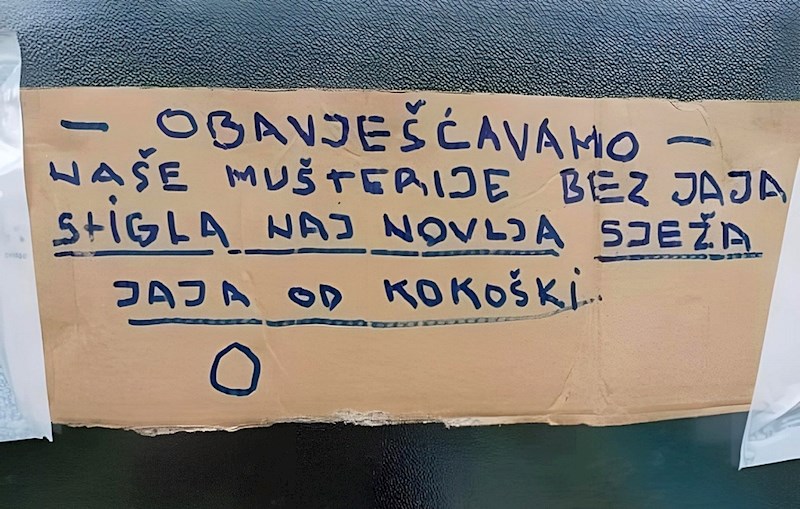 — OBAVJEŠĆAVAMO —
NAŠE MUŠTERIJE BEZ JAJA
STIGLA NAJ NOVIJA SJEŽA
JAJA OD KOKOŠKI.
O